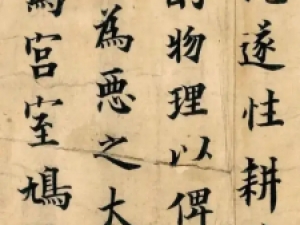 遂性耕
物理以俾
為惡之大
為宮室鳩